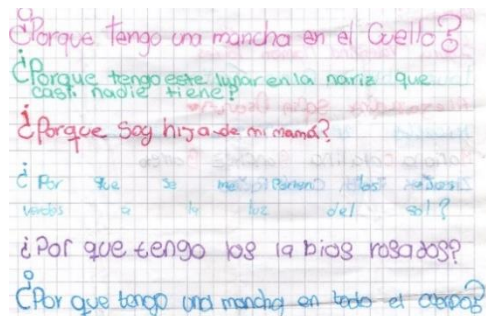 ¿Porque tengo una mancha en el Cuello?
¿Porque tengo este lunar en la nariz que
casi nadie tiene?
¿Porque soy hija de mi mamá?
¿Por que se me ponen los
verdes a la luz del sol?
¿Por que tengo los labios rosados?
¿Por que tengo una mancha en todo el cuerpo?